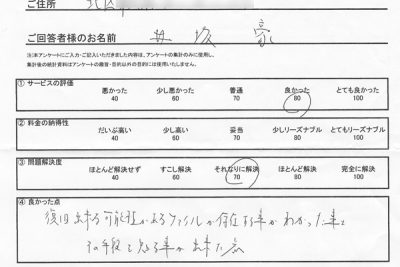 ご住所
ご回答者様のお名前
注)本アンケートにご入力・ご記入いただきました内容は、アンケートの集計のみに使用し、
集計後の統計資料はアンケートの趣旨・目的以外の目的には使用いたしません。
① サービスの評価
悪かった 少し悪かった 普通 良かった とても良かった
40 60 70 80 100
② 料金の納得性
だいぶ高い 少し高い 妥当 少しリーズナブル とてもリーズナブル
40 60 70 80 100
③ 問題解決度
ほとんど解決せず すこし解決 それなりに解決 ほとんど解決 完全に解決
40 60 70 80 100
④ 良かった点
復旧出来る可能性があるファイルが存在する事がわかった事と
その手段を知る事が出来た点